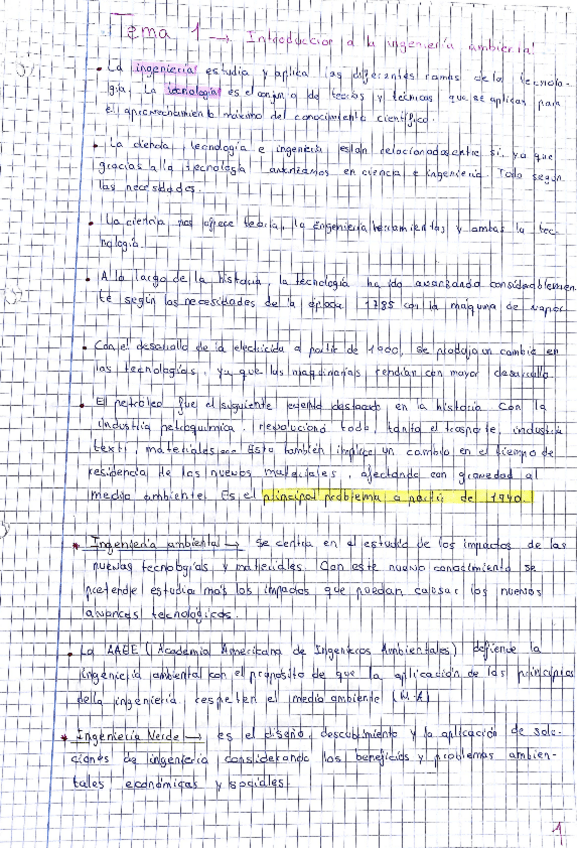 Tema 1 → Introducción a la ingeniería ambiental
• La ingeniería estudia y aplica las diferentes ramas de la tecnolo-
gía. La tecnología es el conjunto de teorías y técnicas que se aplican para
el aprovechamiento máximo del conocimiento científico.
• La ciencia, tecnología e ingeniería están relacionadas entre sí, ya que
gracias a la tecnología avanzamos en ciencia e ingeniería. Todo según
las necesidades.
• La ciencia nos ofrece teoría, la ingeniería herramientas y ambas la tec-
nología.
• A lo largo de la historia, la tecnología ha ido avanzando considerablemen
te según las necesidades de la época. 1785 con la máquina de vapor
• Con el desarrollo de la electricidad a partir de 1900, se produjo un cambio en
las tecnologías, ya que las maquinarias tendían con mayor desarrollo.
• El petróleo fue el siguiente evento destacado en la historia. Con la
industria petroquímica, revolucionó todo, tanto el trasporte, industria
textil, materiales... Esto también implica un cambio en el tiempo de
residencia de los nuevos materiales, afectando con gravedad al
medio ambiente. Es el principal problema a partir de 1940.
* Ingeniería ambiental → se centra en el estudio de los impactos de las
nuevas tecnologías y materiales. Con este nuevo conocimiento se
pretende estudia más los impactos que puedan causar los nuevos
avances tecnológicos.
• La AAEE (Academia Americana de Ingenieros Ambientales) defiende la
ingeniería ambiental con el propósito de que la aplicación de los principios
de la ingeniería respeten el medio ambiente
* Ingeniería Verde → es el diseño, descubrimiento y la aplicación de solu-
ciones de ingeniería considerando los beneficios y problemas ambien-
tales económicas y sociales.
1